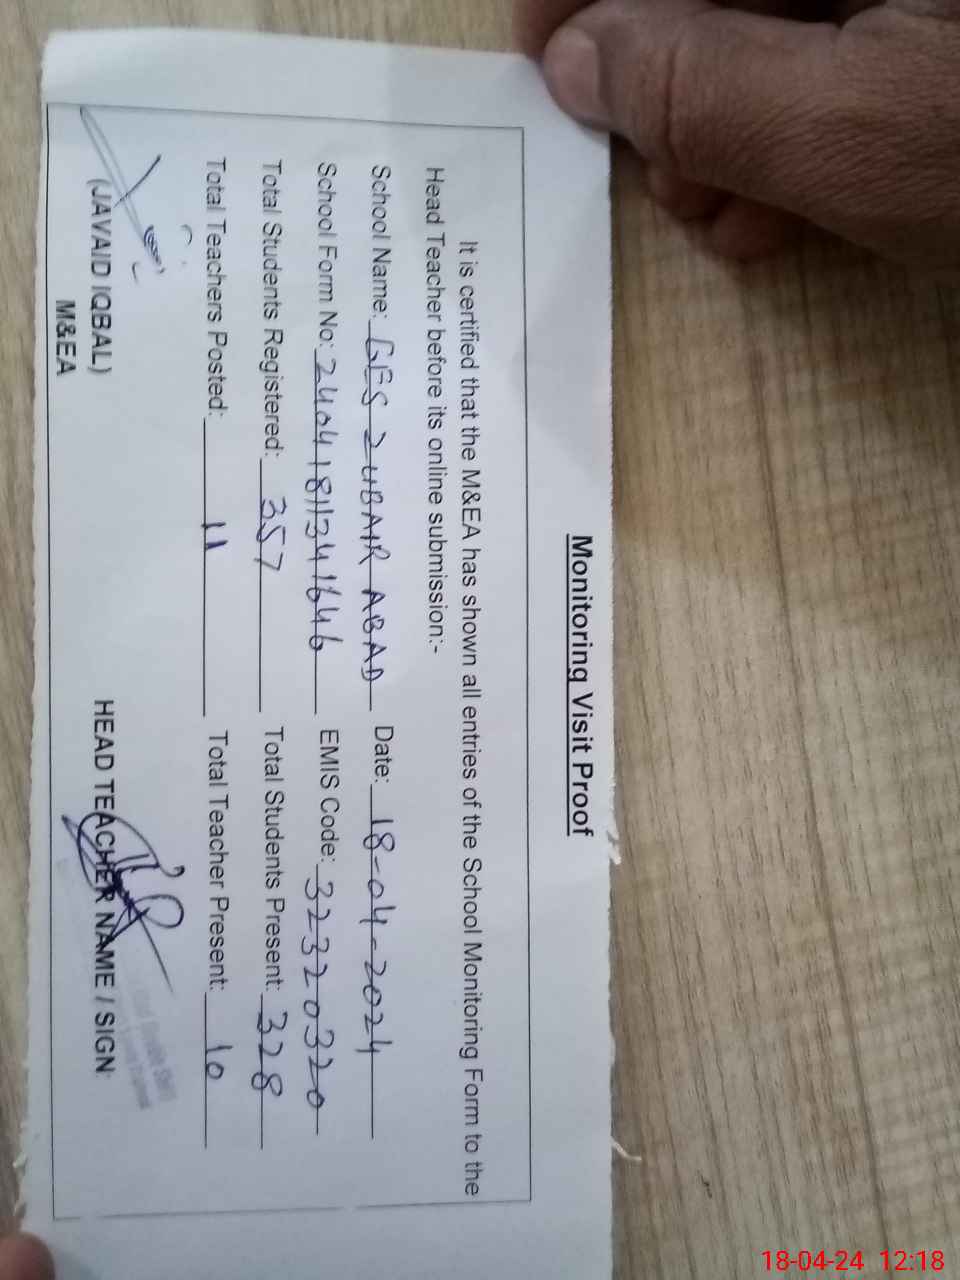 Monitoring Visit Proof
It is certified that the M&EA has shown all entries of the School Monitoring Form to the
Head Teacher before its online submission:-
School Name: GES ZUBAIR ABAD Date: 18-04-2024
School Form No: 24041811341646 EMIS Code: 32320320
Total Students Registered: 357 Total Students Present: 328
Total Teachers Posted: 11 Total Teacher Present: 10
(JAVAID IQBAL) HEAD TEACHER NAME / SIGN:
M&EA
18-04-24 12:18